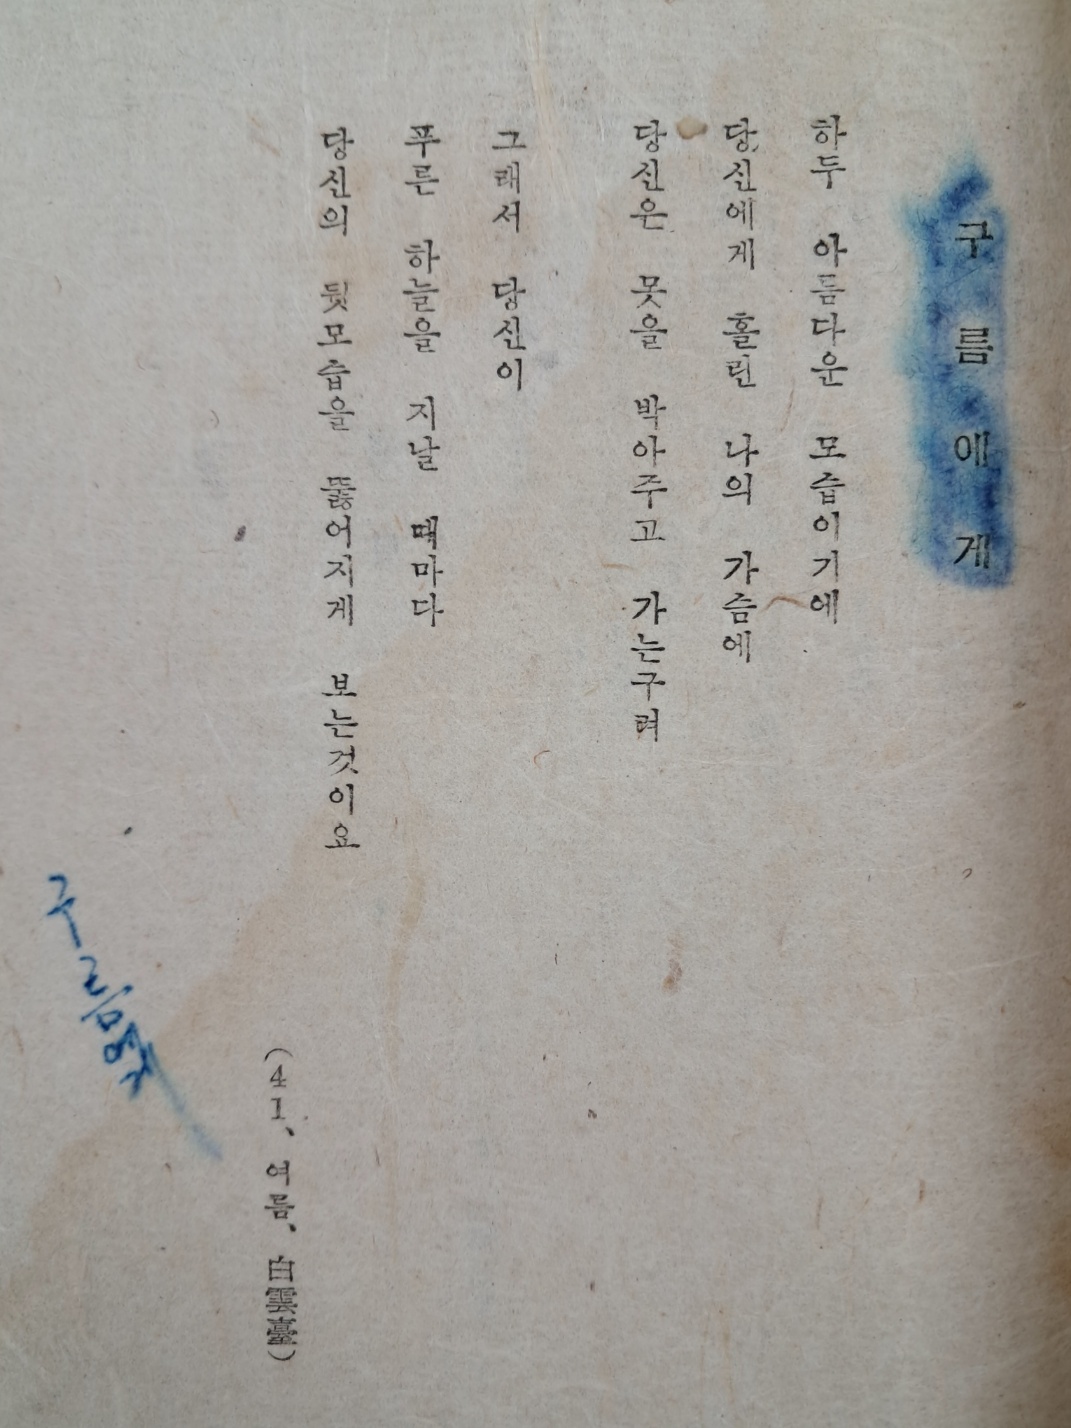 구름에게
하두 아름다운 모습이기에
당신에게 홀린 나의 가슴에
당신은 못을 박아주고 가는구려
그래서 당신이
푸른 하늘을 지날 때마다
당신의 뒷모습을 뚫어지게 보는것이요
(41、여름、白雲臺)
구름에게